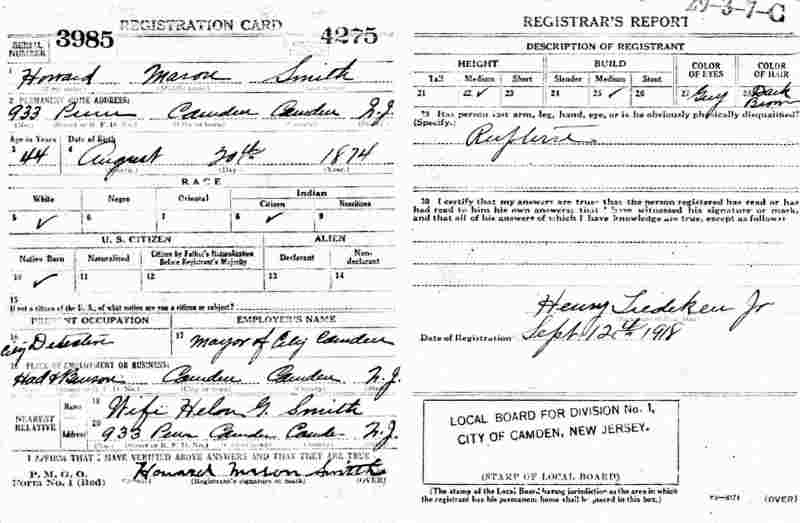 REGISTRATION CARD
SERIAL NUMBER 3985 4275
1 Howard Mason Smith
2 PERMANENT HOME ADDRESS:
933 Penn Camden Camden N.J.
Age in Years Date of Birth
3 44 4 August 20th 1874
(Month.) (Day.) (Year.)
RACE
White Negro Oriental Indian
Citizen Noncitizen
5 ✓ 6 7 8 ✓ 9
U. S. CITIZEN ALIEN
Native Born Naturalized Citizen by Father's Naturalization Before Registrant's Majority Declarant Non-declarant
10 ✓ 11 12 13 14
15
If not a citizen of the U. S., of what nation are you a citizen or subject?
PRESENT OCCUPATION EMPLOYER'S NAME
16 City Detective 17 Mayor of City Camden
18 PLACE OF EMPLOYMENT OR BUSINESS:
Camden Camden N.J.
NEAREST RELATIVE Name 19 Wife Helon G. Smith
Address 20 933 Penn Camden Camden N.J.
I AFFIRM THAT I HAVE VERIFIED ABOVE ANSWERS AND THAT THEY ARE TRUE
P. M. G. O.
Form No. 1 (Red) Howard Mason Smith
(Registrant's signature or mark) (OVER)
29-3-7-C
REGISTRAR'S REPORT
DESCRIPTION OF REGISTRANT
HEIGHT BUILD COLOR OF EYES COLOR OF HAIR
Tall Medium Short Slender Medium Stout
21 22 ✓ 23 24 25 ✓ 26 27 Grey 28 Dark Brown
29 Has person lost arm, leg, hand, eye, or is he obviously physically disqualified?
(Specify.) Rupture
30 I certify that my answers are true; that the person registered has read or has
had read to him his own answers; that I have witnessed his signature or mark,
and that all of his answers of which I have knowledge are true, except as follows:
Henry Jr
Date of Registration Sept 12th 1918
LOCAL BOARD FOR DIVISION No. 1,
CITY OF CAMDEN, NEW JERSEY.
(STAMP OF LOCAL BOARD)
(The stamp of the Local Board having jurisdiction of the area in which
the registrant has his permanent home shall be placed in this box.)
(OVER)